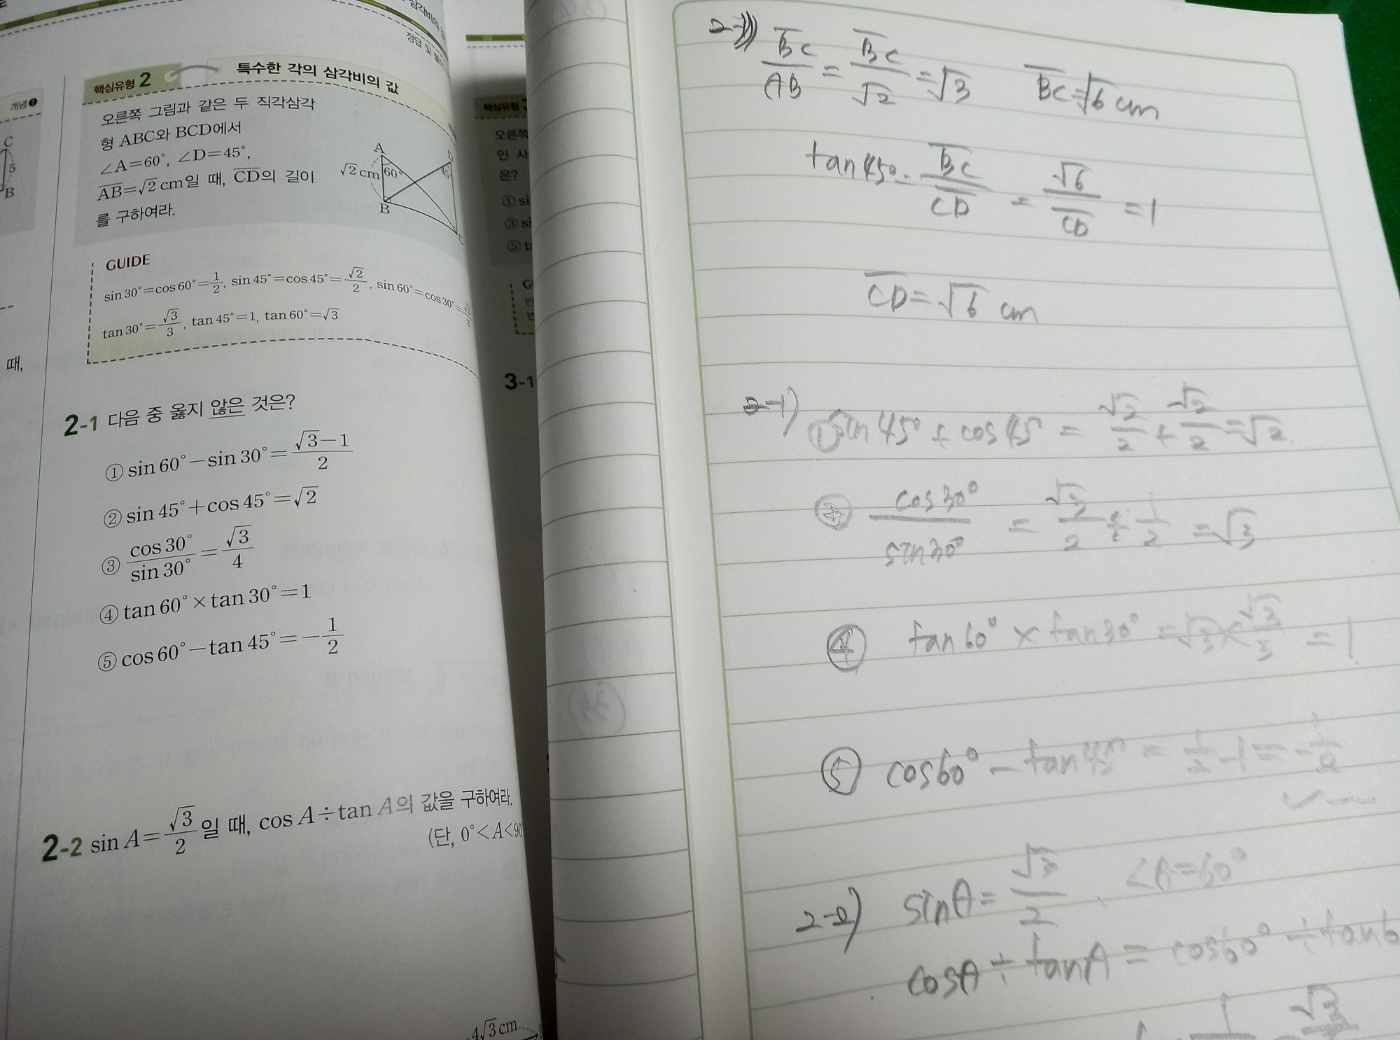 정답 및 풀
개념 ❶
C
5
B
때,
핵심유형 2 특수한 각의 삼각비의 값
오른쪽 그림과 같은 두 직각삼각
형 ABC와 BCD에서
∠A=60°, ∠D=45°,
AB=√2 cm일 때, CD의 길이
를 구하여라.
A
√2 cm 60°
B
C
GUIDE
sin 30°=cos 60°=1/2, sin 45°=cos 45°=√2/2, sin 60°=cos 30°=
tan 30°=√3/3, tan 45°=1, tan 60°=√3
2-1 다음 중 옳지 않은 것은?
① sin 60°−sin 30°=(√3−1)/2
② sin 45°+cos 45°=√2
③ cos 30°/sin 30°=√3/4
④ tan 60°×tan 30°=1
⑤ cos 60°−tan 45°=−1/2
2-2 sin A=√3/2일 때, cos A÷tan A의 값을 구하여라.
(단, 0°<A<90
4√3 cm
핵심유형
오른쪽
인 사
은?
① si
③ si
⑤ t
3-1
BC/AB = BC/√2 = √3 BC=√6 cm
tan45° = BC/CD = √6/CD = 1
CD=√6 cm
2-1) ① sin 45° + cos 45° = √2/2 + √2/2 = √2
cos30°/sin30° = √3/2 ÷ 1/2 = √3
④ tan60° × tan30° = √3 × √3/3 = 1
⑤ cos60° − tan45° = 1/2 − 1 = −1/2
2-2) sinA = √3/2, ∠A=60°
cosA ÷ tanA = cos60° ÷ tan6
1 √3